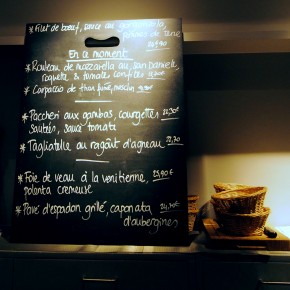 * Filet de bœuf, sauce au
En ce moment
* Rouleau de mozzarella au san Daniele,
roquette & tomates confites
* Carpaccio de thon fumé, mesclun
* Paccheri aux gambas, courgettes
sautées, sauce tomate
* Tagliatelle au ragoût d'agneau
* Foie de veau à la vénitienne, 23,90€
polenta crémeuse
* Pavé d'espadon grillé, caponata 24,70€
d'aubergines